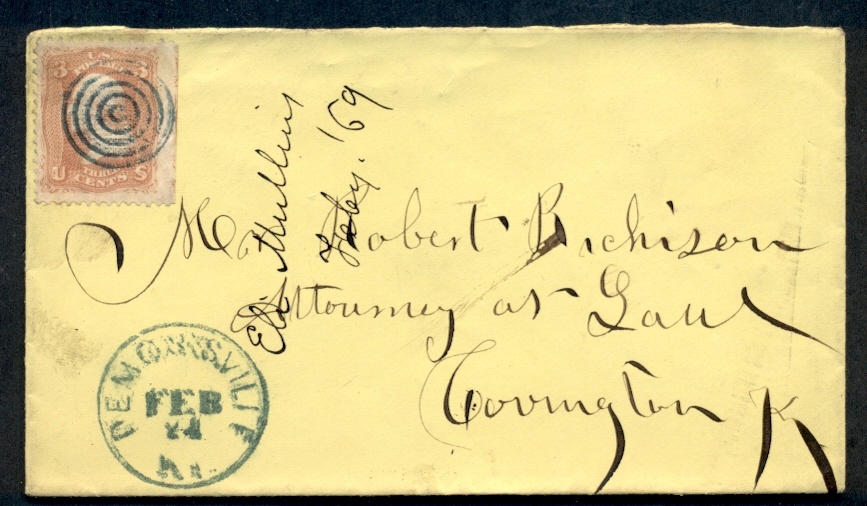 3 U.S. 3
POSTAGE
U THREE S
CENTS
Eli Mullins
Feby. '69
Mr Robert Richison
Attourney at Law
Covington K
DEMOSSVILLE
FEB
KY.